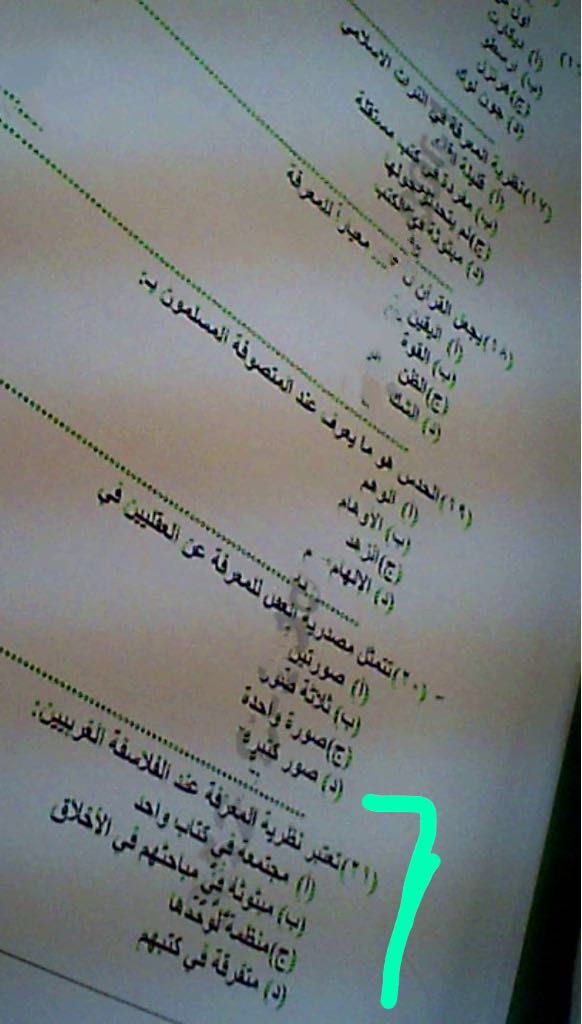 أ) ديكارت
ب) ارسطو
د) جون لوك
(١٧) نظرية المعرفة في التراث الاسلامي
أ) قليلة
ب) مفردة في كتب مستقلة
ج) لم يتحدثوا حولها
د) مبثوثة في الكتب
(١٨) يجعل القرآن معياراً للمعرفة
أ) اليقين
ب) القوة
ج) الظن
د) الشك
(١٩) الحدس هو ما يعرف عند المتصوفة المسلمون بـ:
أ) الوهم
ب) الاوهام
ج) الزهد
د) الإلهام
(٢٠) تتمثل مصدرية العقل للمعرفة عن العقليين في
أ) صورتين
ب) ثلاثة صور
ج) صورة واحدة
د) صور كثيرة
(٢١) تعتبر نظرية المعرفة عند الفلاسفة الغربيين:
أ) مجتمعة في كتاب واحد
ب) مبثوثة في مباحثهم في الأخلاق
ج) منظمة لوحدها
د) متفرقة في كتبهم